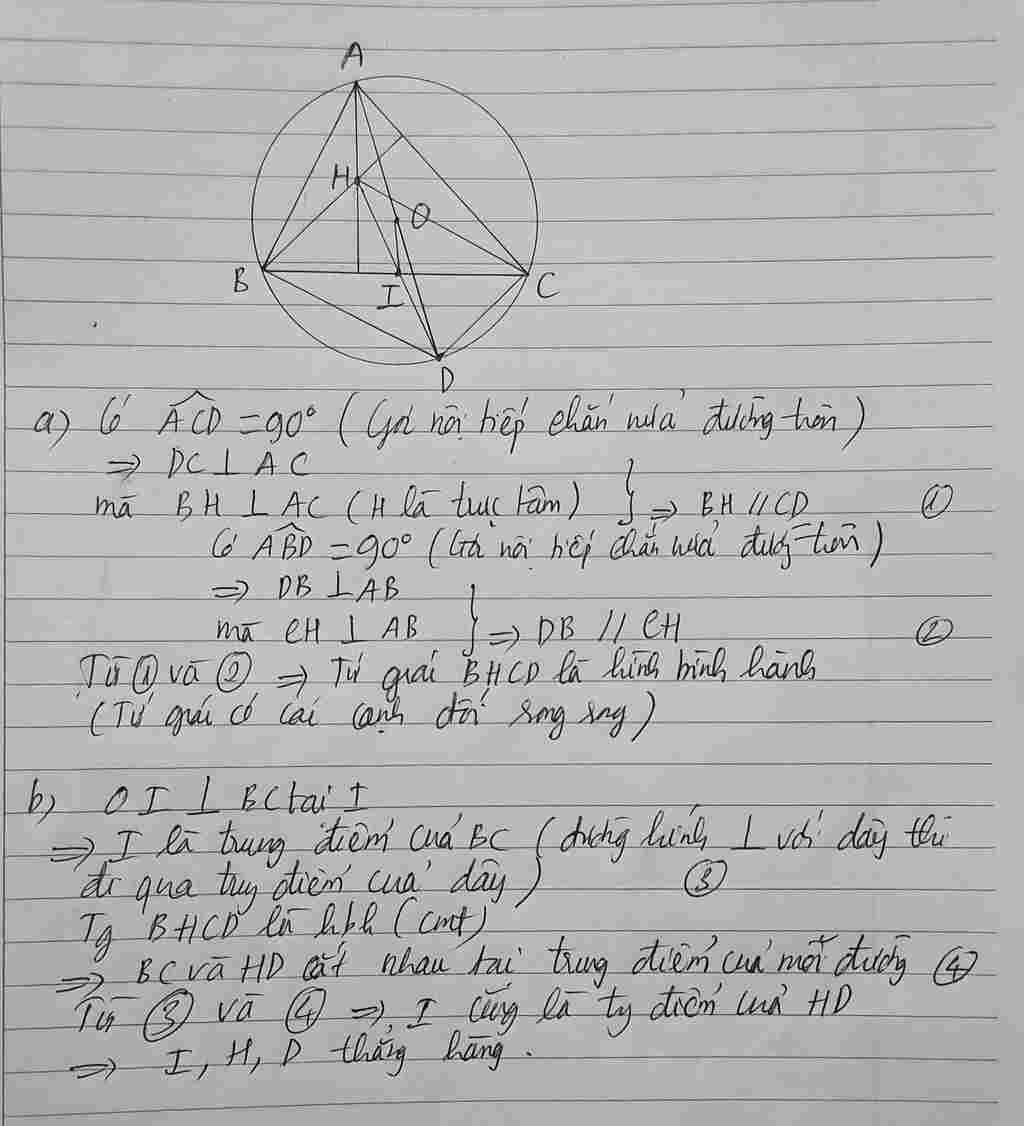 A
H
O
B
I
C
D
a) Có ACD = 90° (Góc nội tiếp chắn nửa đường tròn)
=> DC ⊥ AC
mà BH ⊥ AC (H là trực tâm) } => BH // CD ①
Có ABD = 90° (Góc nội tiếp chắn nửa đường tròn)
=> DB ⊥ AB
mà CH ⊥ AB } => DB // CH ②
Từ ① và ② => Tứ giác BHCD là hình bình hành
(Tứ giác có các cạnh đối song song)
b) OI ⊥ BC tại I
=> I là trung điểm của BC (đường kính ⊥ với dây thì
đi qua trung điểm của dây) ③
Tg BHCD là hbh (cmt)
=> BC và HD cắt nhau tại trung điểm của mỗi đường ④
Từ ③ và ④ => I cũng là tg điểm của HD
=> I, H, D thẳng hàng.